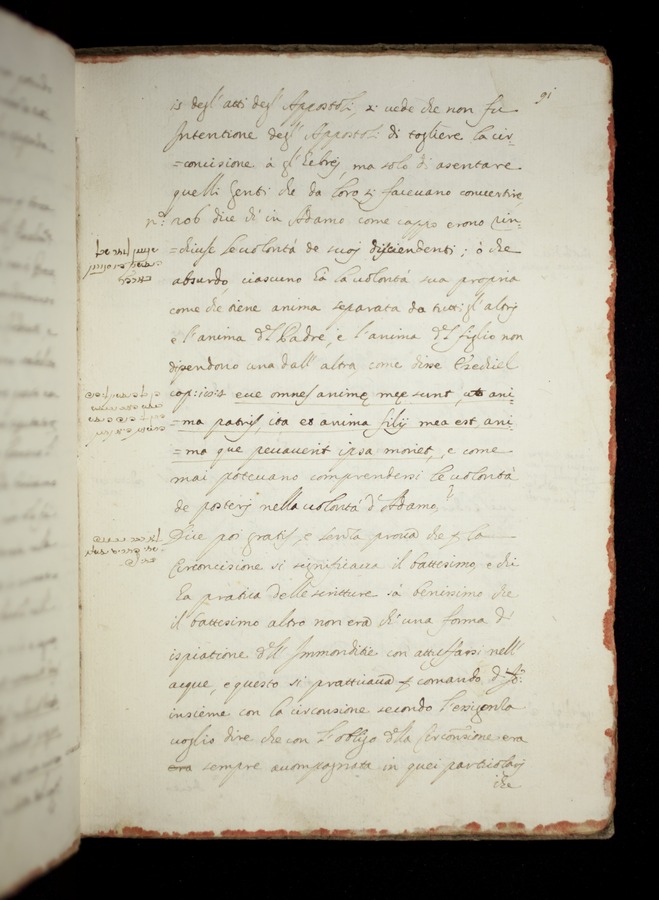 91
15 degl' atti degl' Appostoli, si uede che non fu
Intentione degl' Appostoli di togliere la cir
=concisione à gl' Ebrej, ma solo di asentare
quelli Genti che da loro si faceuano conuertire,
n.º 206 dice ch' in Adamo come cappo erono rin=
=chiuse le uolontà de suoj disciendenti; ò che
absurdo ciascuno hà la uolontà sua propria
come che tiene anima separata da tutti gl' altrj
e l'anima del Padre, e l'anima del figlio non
dipendono una dall' altra come disse Ezechiel
cap: ecce omnes animę meę sunt, ut ani
=ma patris, ita et anima filij mea est, ani
=ma que pecauerit ipsa moriet, e come
mai poteuano comprendersi le uolontà
de posterj nella uolontà d' Adamo?
Dice poi gratis, e senza proua che la
Circoncisione si significaua il battesimo, e chi
hà pratica delle scritture sà benissimo che
il battesimo altro non era ch' una forma d'
ispiatione dell' Immonditie con attuffarsi nell'
acque, e questo si pratticaua comando
insieme con la circonsione secondo l'essigenza
uoglio dire che con l' obligo della Circonsione era
era sempre acompagnata in quei particolarj
che